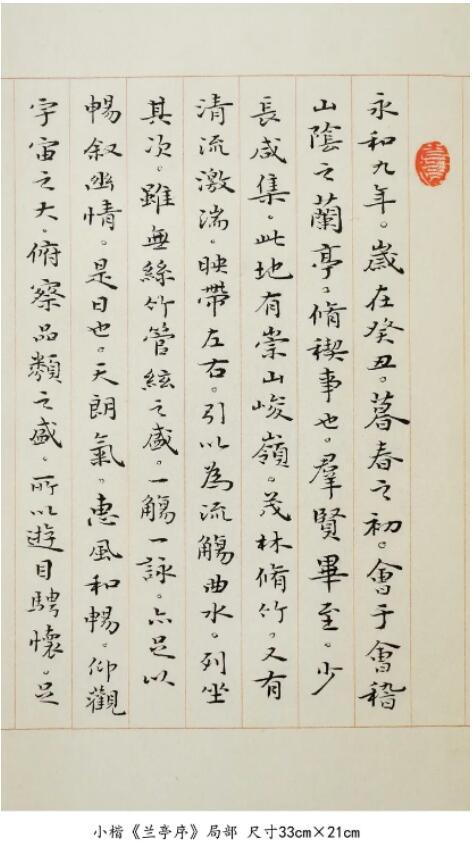 永和九年。歲在癸丑。暮春之初。會于會稽
山陰之蘭亭。脩稧事也。羣賢畢至。少
長咸集。此地有崇山峻嶺。茂林脩竹。又有
清流激湍。映帶左右。引以為流觴曲水。列坐
其次。雖無絲竹管絃之盛。一觴一詠。亦足以
暢叙幽情。是日也。天朗氣。惠風和暢。仰觀
宇宙之大。俯察品類之盛。所以遊目騁懷。足
小楷《兰亭序》局部 尺寸33cm×21cm